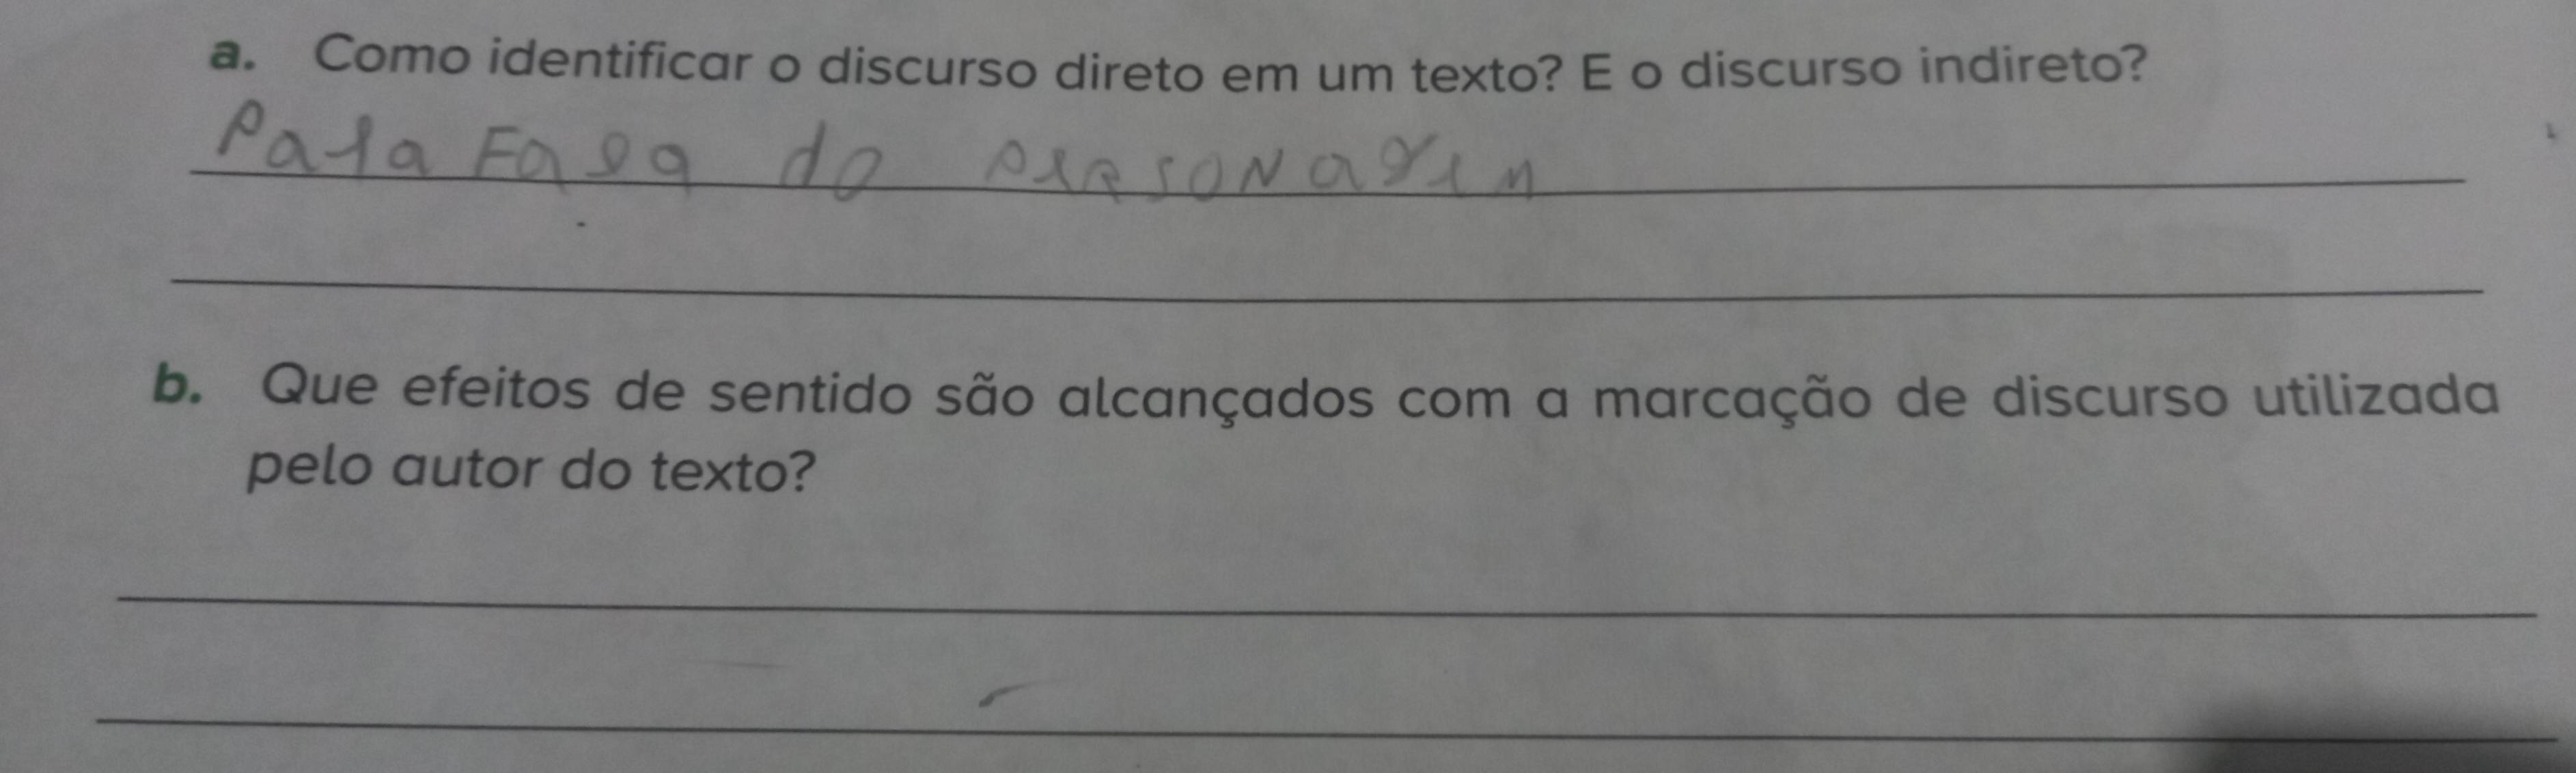 a. Como identificar o discurso direto em um texto? E o discurso indireto?
Pala Fala do personagem
b. Que efeitos de sentido são alcançados com a marcação de discurso utilizada
pelo autor do texto?